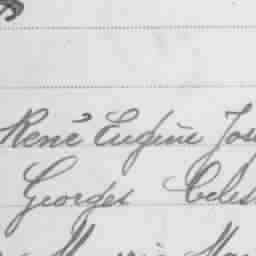 René Eugène Jos
Georges Céles